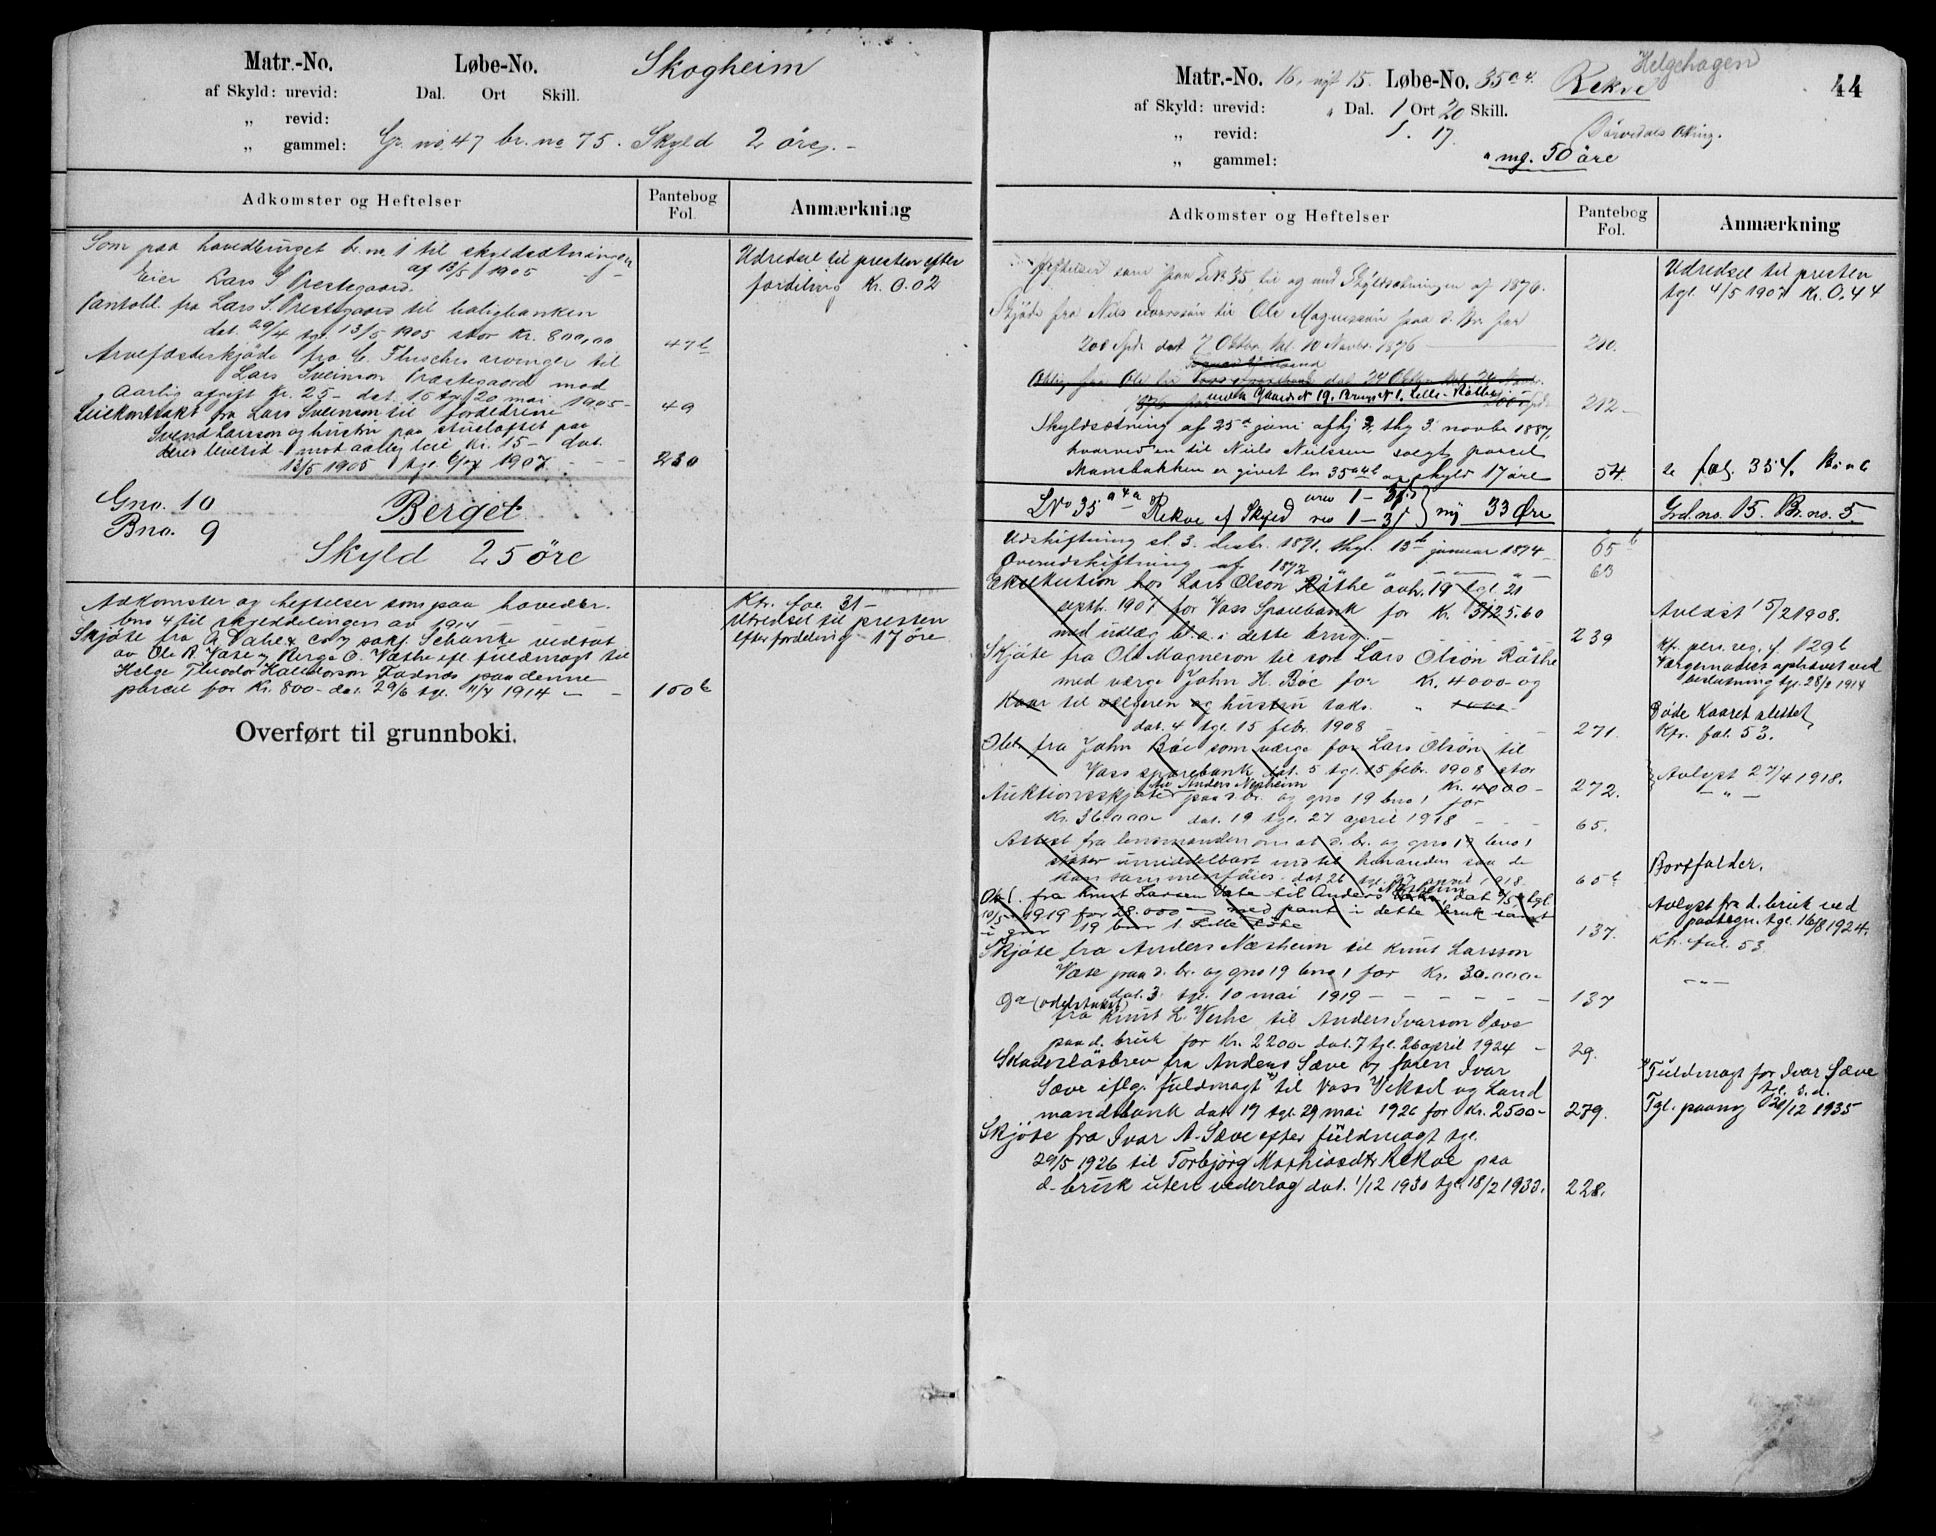 Matr.-No. Løbe-No. Skogheim
af Skyld: urevid: Dal. Ort Skill.
„ revid:
„ gammel: Gr. no. 47 br. no 75. Skyld 2 öre. -
Adkomster og Heftelser Pantebog Fol. Anmærkning
Som paa hovedbruget br.nr. 1 til skyldsætningen
af 13/5 1905
Eier Lars S Prestegaard.
Pantobl. fra Lars S. Prestegaard til boligbanken
dat. 29/4 tgl. 13/5 1905 stor Kr. 800,00 47b
Arvefæsteskjöde fra C. arvinger til
Lars Sveinson Præstegaard mod
aarlig afgift Kr. 25 - dat. 15 tgl 20 mai 1905 - 49
Leiekontrakt fra Lars Sveinson til forældrene
Svend Larsson og hustru paa stueloftet paa
deres levetid mod aarlig leie Kr. 15 - dat.
13/5 1905 tgl. 1907. - - 230
Udredsel til presten efter
fordeling Kr. 0.02
Gno. 10 Berget
Bno. 9
Skyld 25 öre
Adkomster og heftelser som paa hovedbr.
bno 4 til skylddelingen av 1914 - -
Skjöte fra A Dahl & co's sakf. Schanke vedtat
av Ole B Væte og Berge O. Væthe efl. fuldmagt til
Helge Theodor Halldorson Fadnes paa denne
parcel for Kr. 800 - dat. 29/6 tgl. 11/7 1914 - - 100b
Kfr. fol. 31 -
Utredsel til presten
efter fordeling 17 öre
Overført til grunnboki.
Helgehagen
Matr.-No. 16, nyt 15. Løbe-No. 35 a 4. Rekve 44
af Skyld: urevid: „ Dal. 1 Ort 20 Skill.
„ revid: 1. 17. Dørvedals Otting.
„ gammel: „ mg. 50 öre
Adkomster og Heftelser Pantebog Fol. Anmærkning
Heftelser som paa LNo 35 til og med Skyldsætningen af 1876.
Skjöde fra Nils til Ole Magnessøn paa d. Br. for
200 Spd. dat 7 Oktbr. thl. 10 Novbr. 1876 210.
Udredsel til presten
tgl. 4/5 1907 Kr. 0,44
Oblig fra Ole til Voss Sparebank dat 24 Oktbr. thl. 24 Novbr.
1876 for med Gaards No 19, Brugs No 1, Lille-Röthe 212 -
Skyldsætning af 25de juni afhj 2, thg 3. novbr 1887,
hvorved en til Niels Nielssen solgt parcel
Mansbakken er givet ln 35 a 4 b og skyld 17 öre 54.
se fol. 354.
LNo 35 a 4 a Rekve af Skyld urev 1 - rev 1 - 3 } ny 33 Øre Grd. no. 15. Br. no. 5.
Udskiftning sl. 3. decbr. 1891, thgl. 13de januar 1894 - 65b
Overudskiftning af 1892 „ - „ - 63
Eksekution hos Lars Olson Röthe avh. 19 tgl. 21
septbr. 1907 for Voss Sparebank for Kr. 3125.60
med udlæg bl.a. i dette brug. 239
Avlöst 15/2 1908.
Skjöte fra Ole Magneson til son Lars Olsön Röthe
med værge John H. Böe for Kr. 4000 - og
Kaar til sælgeren og hustru taks. „
dat. 4 tgl. 15 febr. 1908 - 271.
Kfr. pers. reg. f. 129b
Værgemaalet ophævet ved
beslutning tgl. 28/2 1914
Döde Kaaret slettet
Kfr. fol. 53.
Obl. fra John Böe som værge for Lars Olsön til
Voss sparebank dat. 5 tgl. 15 febr. 1908 stor
Kr. 4000 - 272.
Avlyst 27/4 1918.
Auktionsskjöte til Anders Nesheim paa d. br. og gno 19 bno 1 for
Kr. 36000 - dat. 19 tgl. 27 april 1918 - - - 65.
Attest fra lensmanden om at d. br. og gno 19 bno 1
stöter umiddelbart ind til hinanden saa de
kan sammenföies - dat 26 tgl. 27 april 1918 65b
Bortfalder.
Obl. fra Knut Larsen Væte til Anders Næsheim dat 3/5 tgl.
10/5 1919 for 28.000 - med pant i dette bruk samt
i gno 19 bno 1 Lille Löte 137.
Avlyst fra d. bruk ved
paategn. tgl. 16/8 1924.
Kfr. fol. 53
Skjöte fra Anders Næsheim til Knut Larsson
Væte paa d. br. og gno 19 bno 1 for Kr. 30.000 -
dat. 3 tgl. 10 mai 1919 - - - - - 137
- " -
Do (odelstakst)
fra Knut L. Væthe til Anders Ivarson Sæve
paa d. bruk for Kr. 2200 - dat. 7 tgl. 26 april 1924 - 29.
Skadeslösbrev fra Anders Sæve og faren Ivar
Sæve iflg. fuldmagt x) til Voss Veksel og Land
mandsbank dat 19 tgl. 29 mai 1926 for Kr. 2500 - 279.
x) Fuldmagt for Ivar Sæve
tgl. s. d.
Tgl. paany 20/12 1935
Skjöte fra Ivar A. Sæve efter fuldmagt tgl.
29/5 1926 til Torbjörg Mathiasdtr Rekve paa
d. bruk uten vederlag dat. 1/12 1930 tgl 18/2 1933. 228.